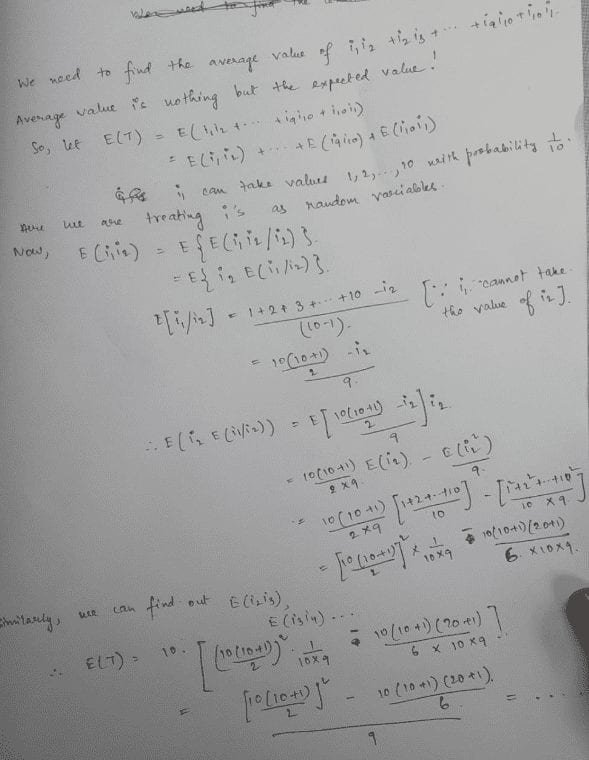 We need to find the average value of i₁i₂ + i₂i₃ + ... + i₉i₁₀ + i₁₀i₁.
Average value is nothing but the expected value!
So, let E(T) = E(i₁i₂ + ... + i₉i₁₀ + i₁₀i₁)
= E(i₁i₂) + ... + E(i₉i₁₀) + E(i₁₀i₁)
i₁ can take values 1, 2, ..., 10 with probability 1/10.
Here we are treating i's as random variables.
Now, E(i₁i₂) = E{E(i₁i₂/i₂)}.
= E{i₂ E(i₁/i₂)}.
E[i₁/i₂] = (1+2+3+...+10 - i₂)/(10-1). [∵ i₁ cannot take the value of i₂].
= (10(10+1)/2 - i₂)/9.
∴ E(i₂ E(i₁/i₂)) = E[(10(10+1)/2 - i₂)/9] i₂
= 10(10+1)/(2×9) E(i₂) - E(i₂²)/9.
= 10(10+1)/(2×9) [(1+2+...+10)/10] - [(1²+2²+...+10²)/(10×9)]
= [10(10+1)/2]² × 1/(10×9) - 10(10+1)(20+1)/(6×10×9).
Similarly, we can find out E(i₂i₃), E(i₃i₄)...
∴ E(T) = 10. [(10(10+1)/2)² . 1/(10×9) - 10(10+1)(20+1)/(6×10×9)].
= ([10(10+1)/2]² - 10(10+1)(20+1)/6)/9 = ....